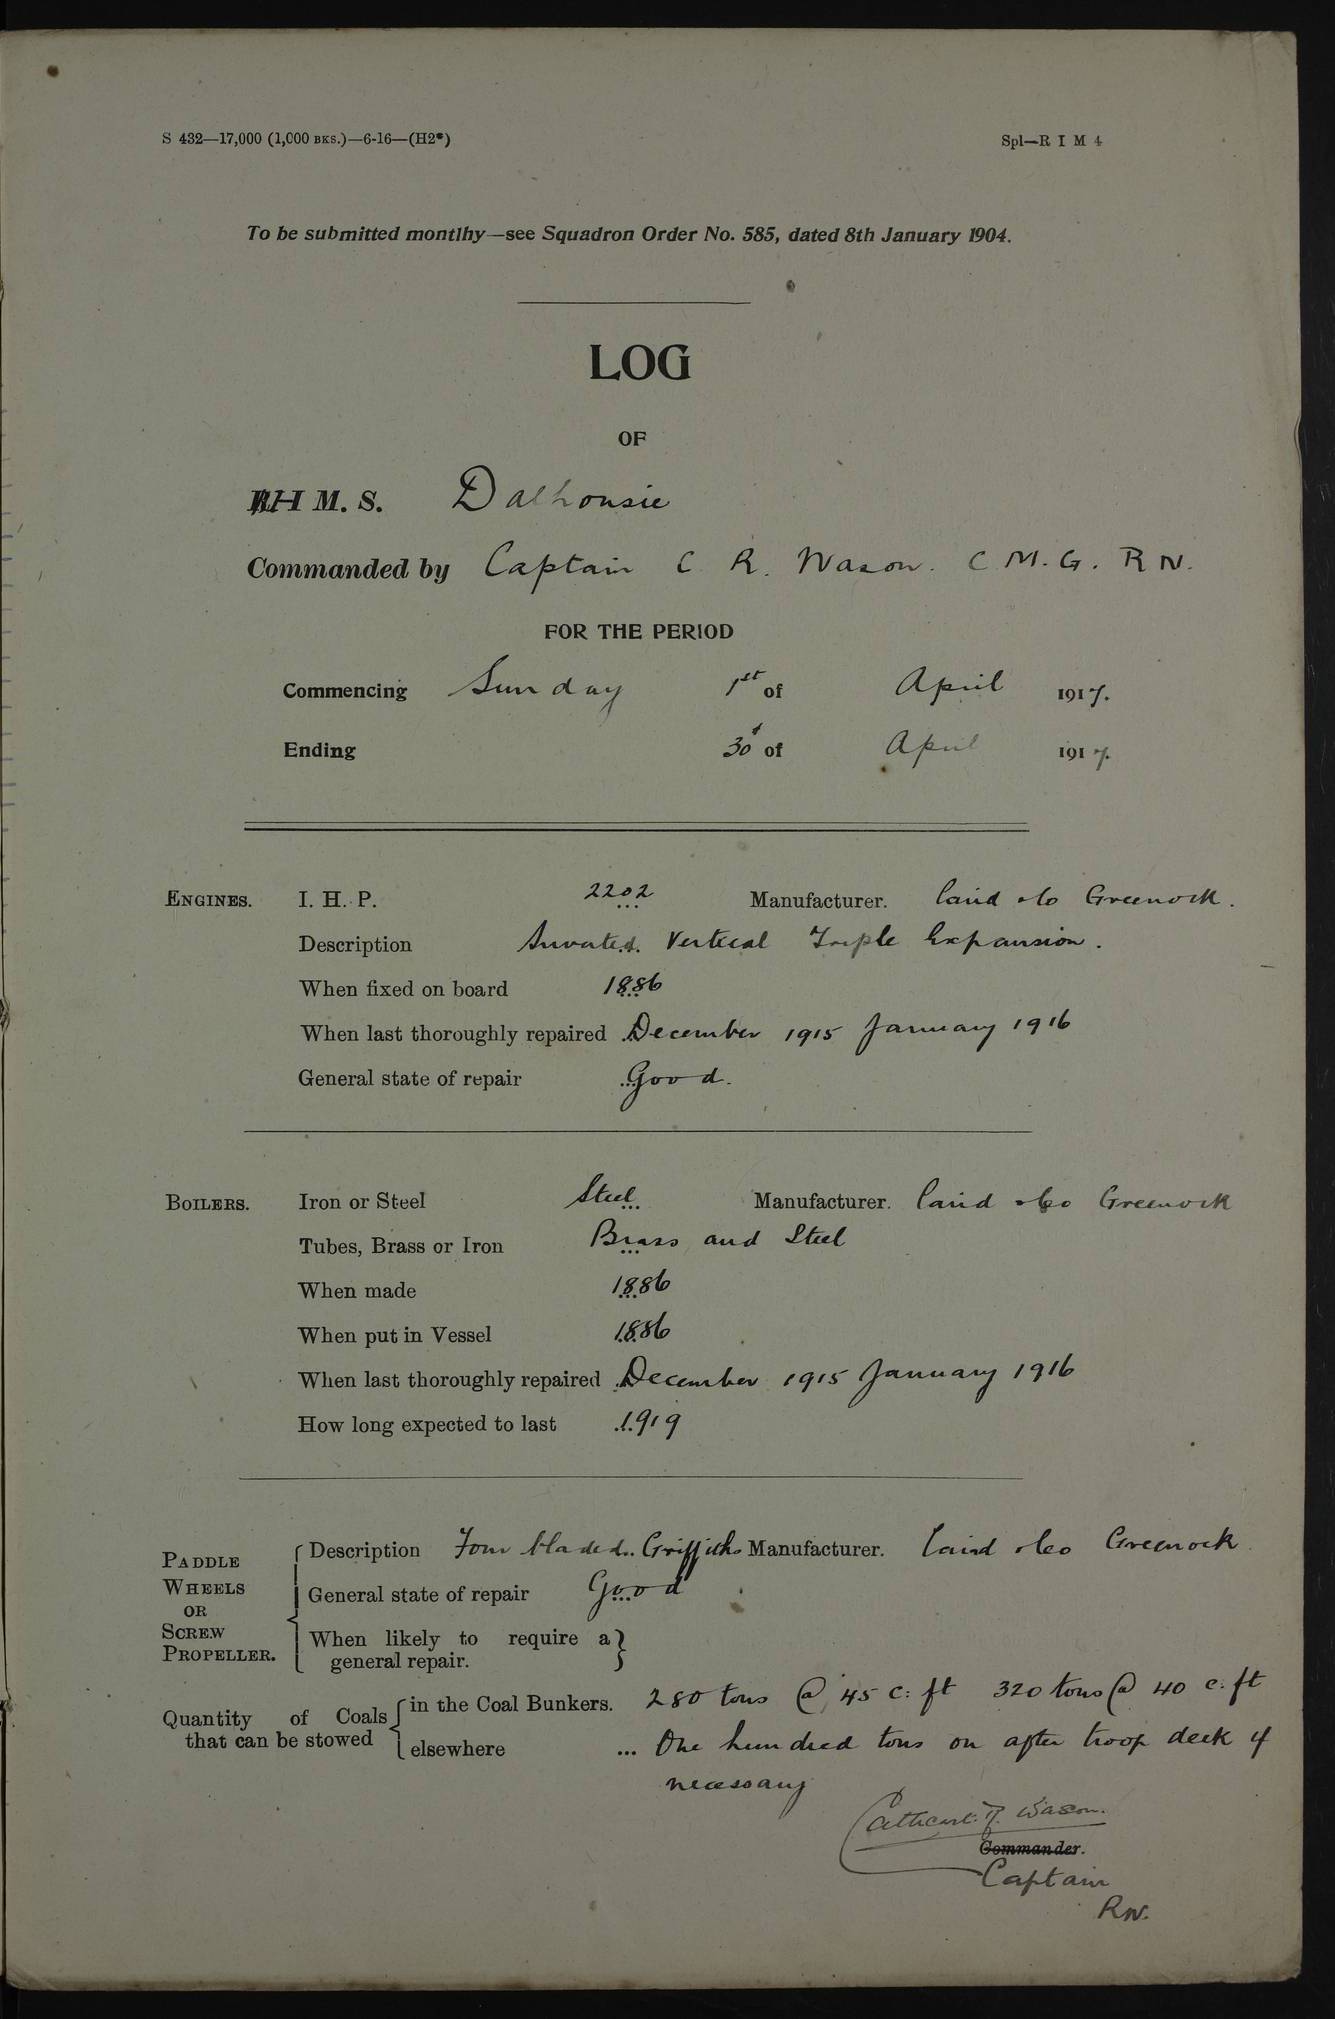 S 432—17,000 (1,000 BKS.)—6-16—(H2*) Spl—R I M 4
To be submitted montlhy—see Squadron Order No. 585, dated 8th January 1904.
LOG
OF
H M. S. Dalhousie
Commanded by Captain C. R. Wason. C. M. G. R N.
FOR THE PERIOD
Commencing Sunday 1st of April 1917.
Ending 30th of April 1917.
ENGINES. I. H. P. 2202 ... Manufacturer. Caird & Co Greenock.
Description Inverted Vertical Triple Expansion.
When fixed on board 1886
When last thoroughly repaired December 1915 January 1916
General state of repair ... Good.
BOILERS. Iron or Steel Steel ... Manufacturer. Caird & Co Greenock
Tubes, Brass or Iron Brass and Steel
When made 1886
When put in Vessel 1886
When last thoroughly repaired December 1915 January 1916
How long expected to last ... 1919
PADDLE WHEELS OR SCREW PROPELLER.
Description Four bladed Griffiths Manufacturer. Caird & Co Greenock
General state of repair Good
When likely to require a
general repair.
Quantity of Coals that can be stowed
in the Coal Bunkers. 280 tons @ 45 c: ft 320 tons @ 40 c: ft
elsewhere ... One hundred tons on after troop deck if
necessary
Cathcart R. Wason.
Commander.
Captain
RN.